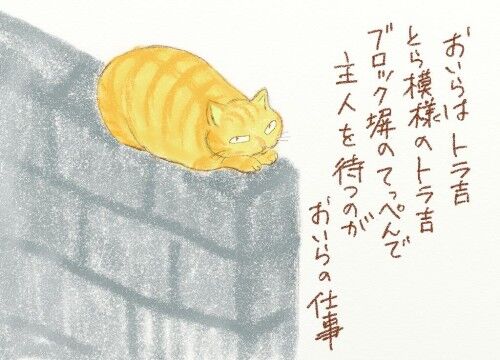 おいらは トラ吉
とら模様のトラ吉
ブロック塀のてっぺんで
主人を待つのが
おいらの仕事